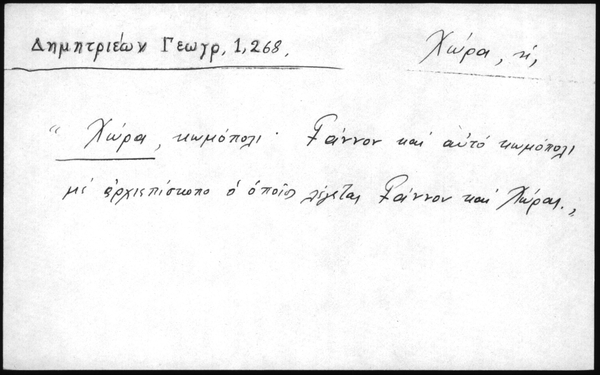 Δημητριέων Γεωγρ. 1,268.
Χώρα, ἡ,
"Χώρα, κωμόπολι· Γάννον καί αὐτό κωμόπολι
μέ ἀρχιεπίσκοπο ὁ ὁποῖος λέγεται Γάννου καί Χώρας.,,